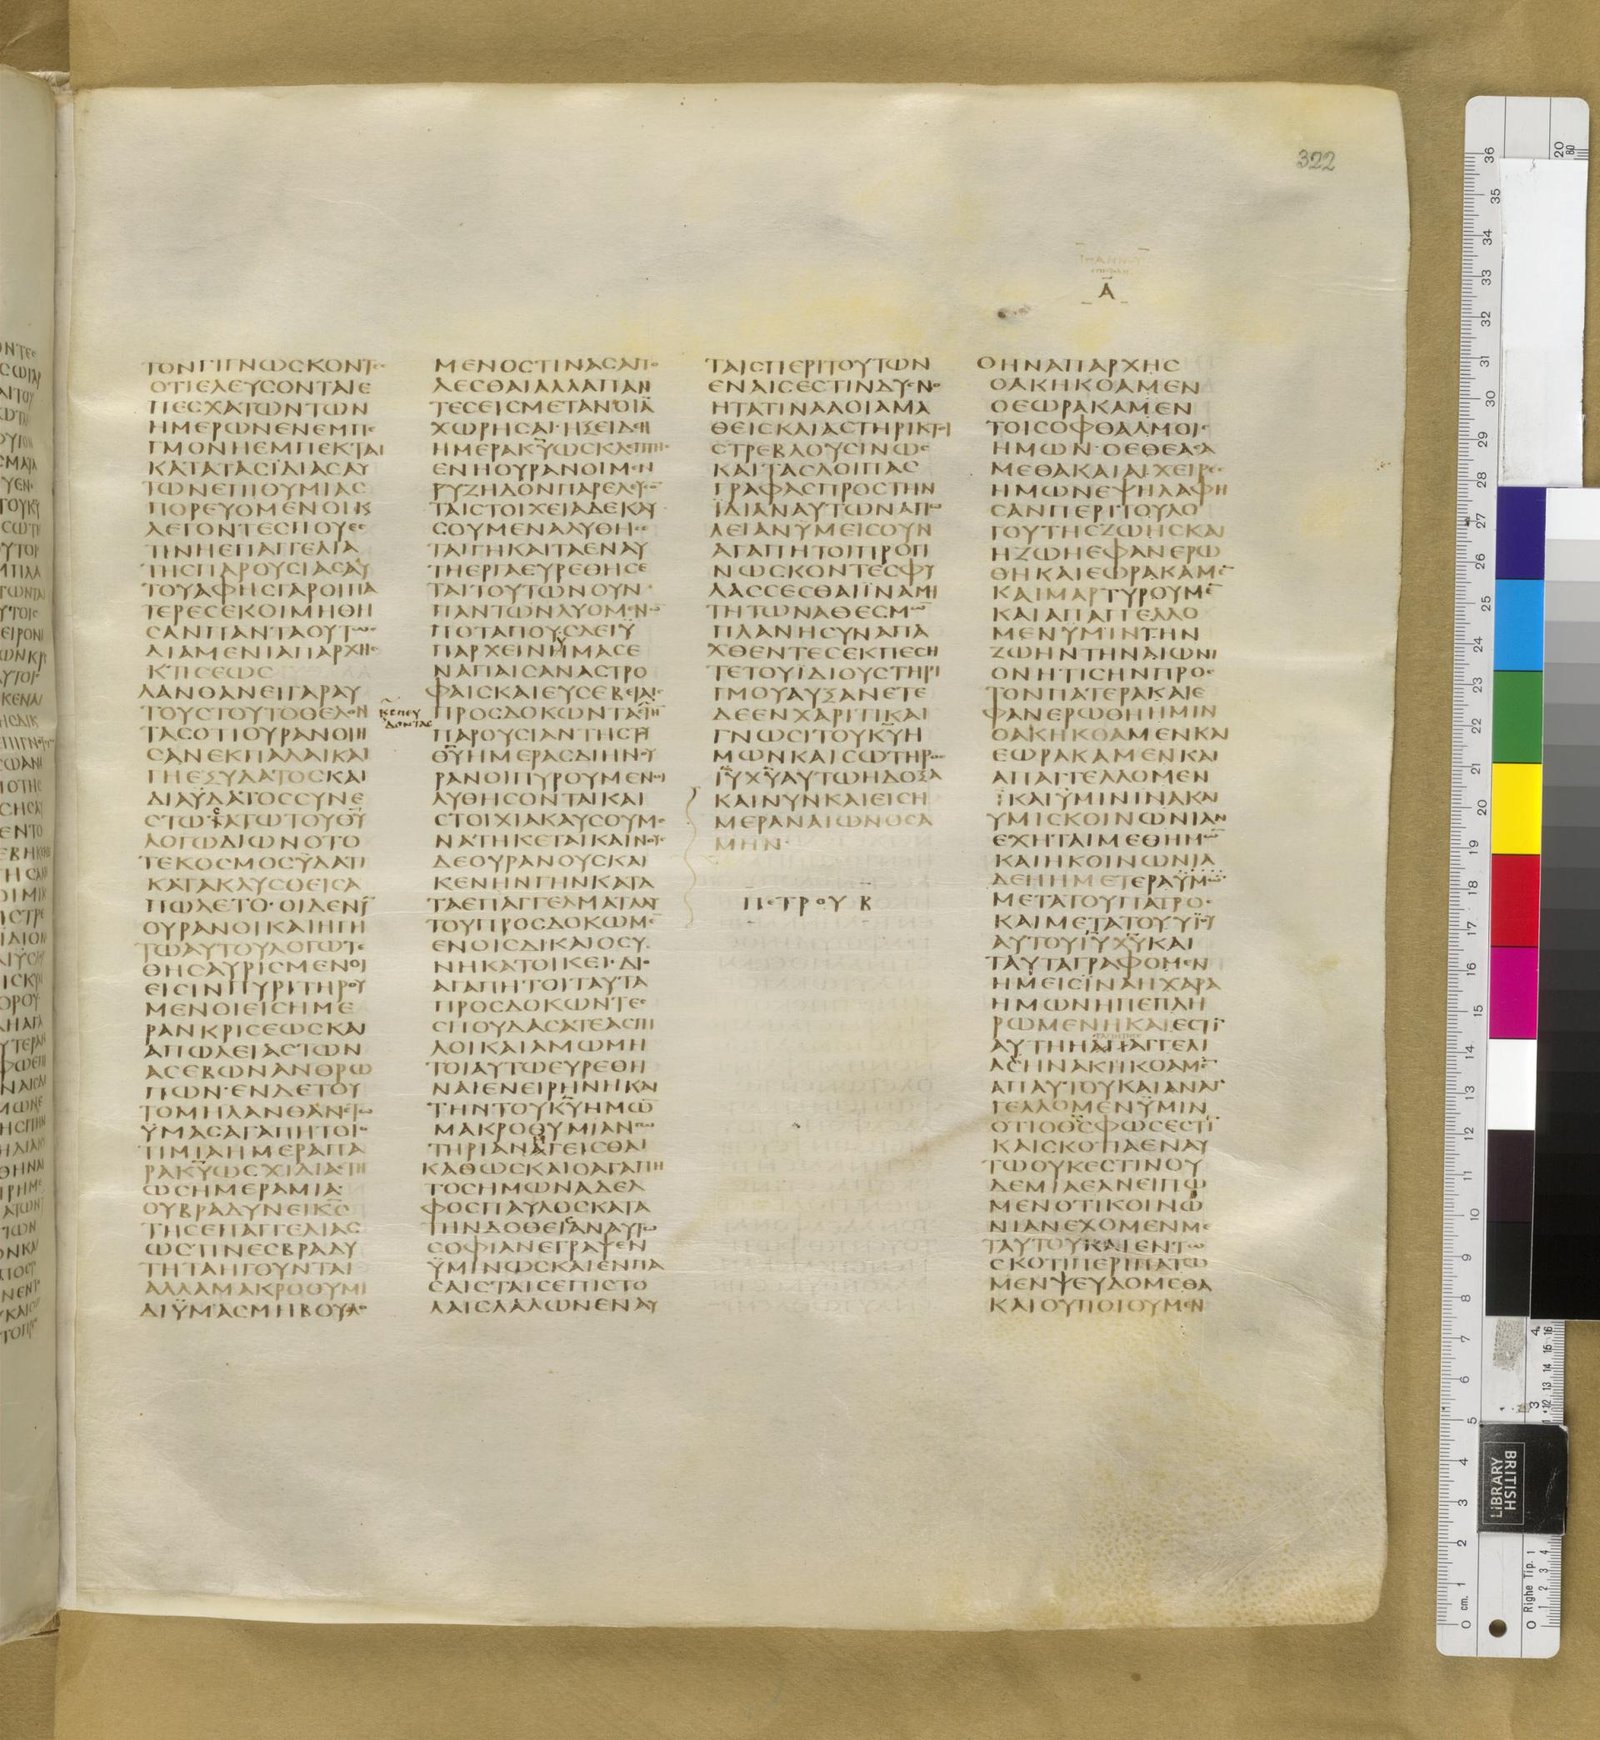 322
Α
ΤΟΝΓΙΓΝΩСΚΟΝΤΕС
ΟΤΙΕΛΕΥСΟΝΤΑΙΕ
ΠΕСΧΑΤΩΝΤΩΝ
ΗΜΕΡΩΝΕΝΕΜΠΕ
ΓΜΟΝΗΕΜΠΕΚΤΑΙ
ΚΑΤΑΤΑСΪΔΙΑСΑΥ
ΤΩΝΕΠΙΘΥΜΙΑС
ΠΟΡΕΥΟΜΕΝΟΙΚΑΙ
ΛΕΓΟΝΤΕСΠΟΥΕС
ΤΙΝΗΕΠΑΓΓΕΛΙΑ
ΤΗСΠΑΡΟΥСΙΑСΑΥ
ΤΟΥΑΦΗСΓΑΡΟΙΠΑ
ΤΕΡΕСΕΚΟΙΜΗΘΗ
СΑΝΠΑΝΤΑΟΥΤΩС
ΔΙΑΜΕΝΙΑΠΑΡΧΗС
ΚΤΙСΕΩС
ΛΑΝΘΑΝΕΙΓΑΡΑΥ
ΤΟΥСΤΟΥΤΟΘΕΛΟΝ
ΤΑСΟΤΙΟΥΡΑΝΟΙΗ
СΑΝΕΚΠΑΛΑΙΚΑΙ
ΓΗΕΞΥΔΑΤΟСΚΑΙ
ΔΙΑΫΔΑΤΟССΥΝΕ
СΤΩΤΑΤΩΤΟΥΘΥ
ΛΟΓΩΔΙΩΝΟΤΟ
ΤΕΚΟСΜΟСΫΔΑΤΙ
ΚΑΤΑΚΛΥСΘΕΙСΑ
ΠΩΛΕΤΟ·ΟΙΔΕΝΥ
ΟΥΡΑΝΟΙΚΑΙΗΓΗ
ΤΩΑΥΤΟΥΛΟΓΩΤΕ
ΘΗСΑΥΡΙСΜΕΝΟΙ
ΕΙСΙΝΠΥΡΙΤΗΡΟΥ
ΜΕΝΟΙΕΙСΗΜΕ
ΡΑΝΚΡΙСΕΩСΚΑΙ
ΑΠΩΛΕΙΑСΤΩΝ
ΑСΕΒΩΝΑΝΘΡΩ
ΠΩΝ·ΕΝΔΕΤΟΥ
ΤΟΜΗΛΑΝΘΑΝΕΤΩ
ΫΜΑСΑΓΑΠΗΤΟΙ
ΤΙΜΙΑΗΜΕΡΑΠΑ
ΡΑΚΥΩСΧΙΛΙΑΕΤΗ
ΩСΗΜΕΡΑΜΙΑ
ΟΥΒΡΑΔΥΝΕΙΚС
ΤΗСΕΠΑΓΓΕΛΙΑС
ΩСΤΙΝΕСΒΡΑΔΥ
ΤΗΤΑΗΓΟΥΝΤΑΙ
ΑΛΛΑΜΑΚΡΟΘΥΜΙ
ΔΙΫΜΑСΜΗΒΟΥΛΟ
ΚΕΠΕΥ
ΔΟΝΤΑС
ΜΕΝΟСΤΙΝΑСΑΠΟ
ΛΕСΘΑΙΑΛΛΑΠΑΝ
ΤΕСΕΙСΜΕΤΑΝΟΙΑ
ΧΩΡΗСΑΙ·ΗΞΕΙΔΕΗ
ΗΜΕΡΑΚΥΩСΚΛΕΠΤΗС
ΕΝΗΟΥΡΑΝΟΙΜΕΝ
ΡΥΖΗΔΟΝΠΑΡΕΛΕΥ
ΤΑΙСΤΟΙΧΕΙΑΔΕΚΑΥ
СΟΥΜΕΝΑΛΥΘΗСΕ
ΤΑΙΓΗΚΑΙΤΑΕΝΑΥ
ΤΗΕΡΓΑΕΥΡΕΘΗСΕ
ΤΑΙΤΟΥΤΩΝΟΥΝ
ΠΑΝΤΩΝΛΥΟΜΕΝΩ
ΠΟΤΑΠΟΥСΔΕΙΫ
ΠΑΡΧΕΙΝΗΜΑСΕ
ΝΑΓΙΑΙСΑΝΑСΤΡΟ
ΦΑΙСΚΑΙΕΥСΕΒΕΙΑΙС
ΠΡΟСΔΟΚΩΝΤΑСΤΗ
ΠΑΡΟΥСΙΑΝΤΗСΤΗ
ΘΥΗΜΕΡΑСΔΙΗΝΟΥ
ΡΑΝΟΙΠΥΡΟΥΜΕΝΟΙ
ΛΥΘΗСΟΝΤΑΙΚΑΙ
СΤΟΙΧΙΑΚΑΥСΟΥΜΕ
ΝΑΤΗΚΕΤΑΙΚΑΙΝΟΥС
ΔΕΟΥΡΑΝΟΥСΚΑΙ
ΚΕΝΗΝΓΗΝΚΑΤΑ
ΤΑΕΠΑΓΓΕΛΜΑΤΑΑΥ
ΤΟΥΠΡΟСΔΟΚΩΜΕ
ΕΝΟΙСΔΙΚΑΙΟСΥ
ΝΗΚΑΤΟΙΚΕΙ·ΔΙΟ
ΑΓΑΠΗΤΟΙΤΑΥΤΑ
ΠΡΟСΔΟΚΩΝΤΕС
СΠΟΥΔΑСΑΤΕΑСΠΙ
ΛΟΙΚΑΙΑΜΩΜΗ
ΤΟΙΑΥΤΩΕΥΡΕΘΗ
ΝΑΙΕΝΕΙΡΗΝΗΚΑΙ
ΤΗΝΤΟΥΚΥΗΜΩ
ΜΑΚΡΟΘΥΜΙΑΝСΩ
ΤΗΡΙΑΝΗΓΕΙСΘΑΙ
ΚΑΘΩСΚΑΙΟΑΓΑΠΗ
ΤΟСΗΜΩΝΑΔΕΛ
ΦΟСΠΑΥΛΟСΚΑΤΑ
ΤΗΝΔΟΘΕΙСΑΝΑΥΤΩ
СΟΦΙΑΝΕΓΡΑΨΕΝ
ΫΜΙΝΩСΚΑΙΕΝΠΑ
СΑΙСΤΑΙСΕΠΙСΤΟ
ΛΑΙСΛΑΛΩΝΕΝΑΥ
ΤΑΙСΠΕΡΙΤΟΥΤΩΝ
ΕΝΑΙСΕСΤΙΝΔΥСΝΟ
ΗΤΑΤΙΝΑΑΟΙΑΜΑ
ΘΕΙСΚΑΙΑСΤΗΡΙΚΤΟΙ
СΤΡΕΒΛΟΥСΙΝΩС
ΚΑΙΤΑСΛΟΙΠΑС
ΓΡΑΦΑСΠΡΟСΤΗΝ
ΪΔΙΑΝΑΥΤΩΝΑΠΩ
ΛΕΙΑΝΥΜΕΙСΟΥΝ
ΑΓΑΠΗΤΟΙΠΡΟΓΙ
ΝΩСΚΟΝΤΕСΦΥ
ΛΑССΕСΘΑΙΪΝΑΜΗ
ΤΗΤΩΝΑΘΕСΜΩ
ΠΛΑΝΗСΥΝΑΠΑ
ΧΘΕΝΤΕСΕΚΠΕСΗ
ΤΕΤΟΥΪΔΙΟΥСΤΗΡΙ
ΓΜΟΥΑΥΞΑΝΕΤΕ
ΔΕΕΝΧΑΡΙΤΙΚΑΙ
ΓΝΩСΙΤΟΥΚΥΗ
ΜΩΝΚΑΙСΩΤΗΡΟС
ΙΥΧΥΑΥΤΩΗΔΟΞΑ
ΚΑΙΝΥΝΚΑΙΕΙСΗ
ΜΕΡΑΝΑΙΩΝΟСΑ
ΜΗΝ
ΠΕΤΡΟΥ Β
ΟΗΝΑΠΑΡΧΗС
ΟΑΚΗΚΟΑΜΕΝ
ΟΕΩΡΑΚΑΜΕΝ
ΤΟΙСΟΦΘΑΛΜΟΙС
ΗΜΩΝ·ΟΕΘΕΑСΑ
ΜΕΘΑΚΑΙΑΙΧΕΙΡΕС
ΗΜΩΝΕΨΗΛΑΦΗ
СΑΝΠΕΡΙΤΟΥΛΟ
ΓΟΥΤΗСΖΩΗСΚΑΙ
ΗΖΩΗΕΦΑΝΕΡΩ
ΘΗΚΑΙΕΩΡΑΚΑΜΕ
ΚΑΙΜΑΡΤΥΡΟΥΜΕ
ΚΑΙΑΠΑΓΓΕΛΛΟ
ΜΕΝΥΜΙΝΤΗΝ
ΖΩΗΝΤΗΝΑΙΩΝΙ
ΟΝΗΤΙСΗΝΠΡΟС
ΤΟΝΠΑΤΕΡΑΚΑΙΕ
ΦΑΝΕΡΩΘΗΗΜΙΝ
ΟΑΚΗΚΟΑΜΕΝΚΑΙ
ΕΩΡΑΚΑΜΕΝΚΑΙ
ΑΠΑΓΓΕΛΛΟΜΕΝ
ΚΑΙΫΜΙΝΙΝΑΚΑΙ
ΥΜΙСΚΟΙΝΩΝΙΑΝ
ΕΧΗΤΑΙΜΕΘΗΜΩ
ΚΑΙΗΚΟΙΝΩΝΙΑ
ΔΕΗΗΜΕΤΕΡΑΫΜΩ
ΜΕΤΑΤΟΥΠΑΤΡΟС
ΚΑΙΜΕΤΑΤΟΥΥΪΟΥ
ΑΥΤΟΥΙΥΧΥΚΑΙ
ΤΑΥΤΑΓΡΑΦΟΜΕΝ
ΗΜΕΙСΪΝΑΗΧΑΡΑ
ΗΜΩΝΗΠΕΠΛΗ
ΡΩΜΕΝΗΚΑΙΕСΤΙ
ΑΥΤΗΗΑΠΑΓΓΕΛΙ
ΑСΗΝΑΚΗΚΟΑΜΕ
ΑΠΑΥΤΟΥΚΑΙΑΝΑΓ
ΓΕΛΛΟΜΕΝΫΜΙΝ
ΟΤΙΟΘСΦΩСΕСΤΙ
ΚΑΙСΚΟΤΙΑΕΝΑΥ
ΤΩΟΥΚΕСΤΙΝΟΥ
ΔΕΜΙΑΕΑΝΕΙΠΩ
ΜΕΝΟΤΙΚΟΙΝΩ
ΝΙΑΝΕΧΟΜΕΝΜΕ
ΤΑΥΤΟΥΚΑΙΕΝΤΩ
СΚΟΤΙΠΕΡΙΠΑΤΩ
ΜΕΝΨΕΥΔΟΜΕΘΑ
ΚΑΙΟΥΠΟΙΟΥΜΕΝ
BRITISH
LIBRARY